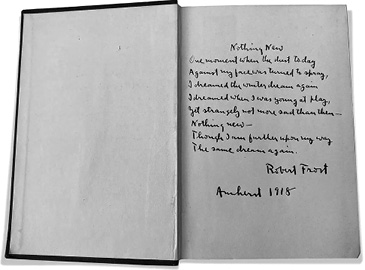 Nothing New
One moment when the dust to day
Against my face was turned to spray,
I dreamed the winter dream again
I dreamed when I was young at play,
Yet strangely not more sad than then—
Nothing new—
Though I am further upon my way
The same dream again.
Robert Frost
Amherst 1918